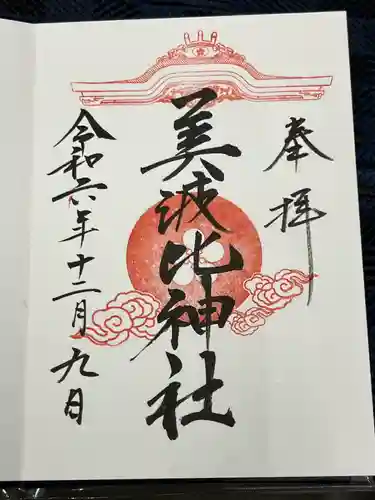 奉拝
美波比神社
令和六年十二月九日